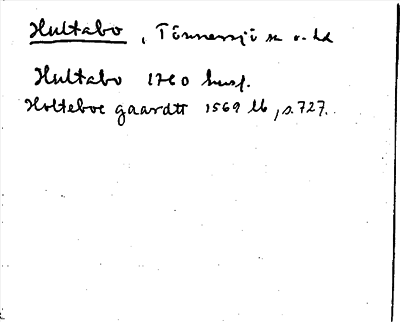 Hultabo, Tönnersjö sn o. hd
Hultabo 1760 husf.
Holteboe gaardtt 1569 lb, s. 727.